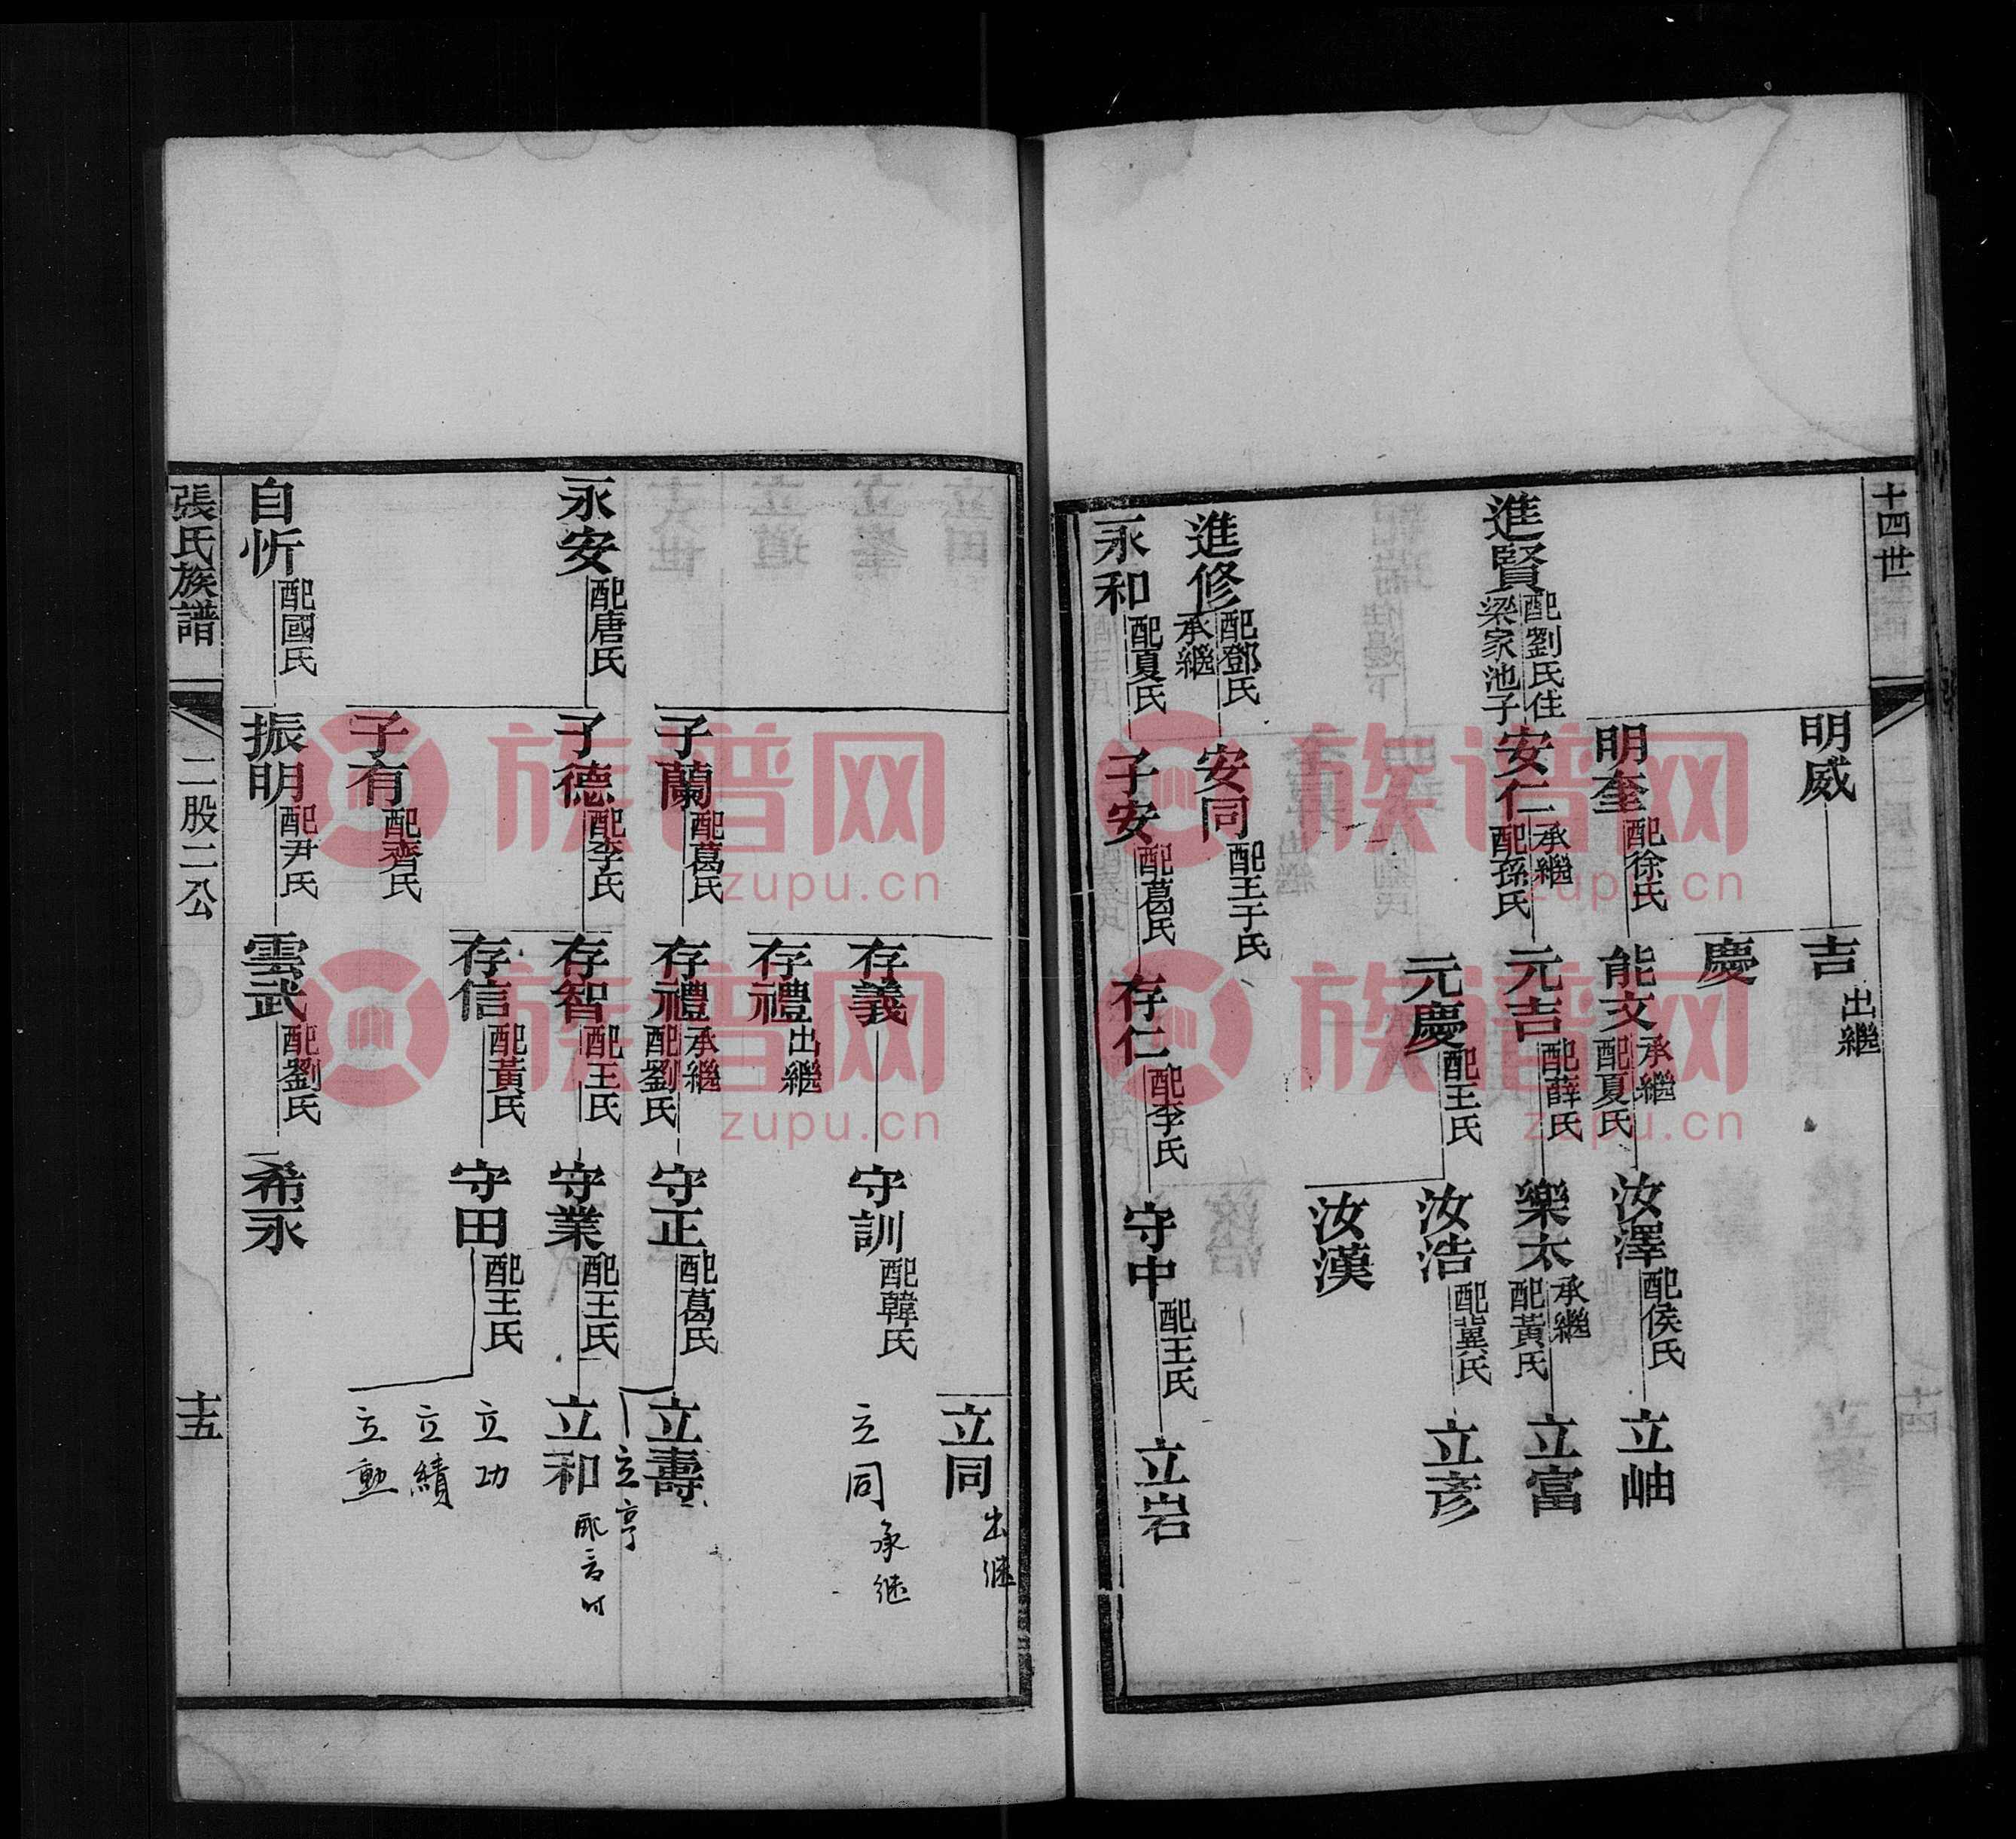 十四世
明威
吉 出繼
慶
明奎 配徐氏
能文 承繼 配夏氏
汝澤 配侯氏
立岫
進賢 配劉氏住梁家池子
安仁 承繼 配孫氏
元吉 配薛氏
樂太 承繼 配黃氏
立富
元慶 配王氏
汝浩 配冀氏
立彥
汝漢
進修 配鄧氏 承繼
安同 配王于氏
永和 配夏氏
子安 配葛氏
存仁 配李氏
守中 配王氏
立岩
立同 出继
存義
守訓 配韓氏
立同 承继
存禮 出繼
子蘭 配葛氏
存禮 承繼 配劉氏
守正 配葛氏
立壽
立亨
永安 配唐氏
子德 配李氏
存智 配王氏
守業 配王氏
立和
存信 配黃氏
守田 配王氏
立功
立績
立勳
子有 配齊氏
自忻 配國氏
振明 配尹氏
雲武 配劉氏
希永
張氏族譜
二股二公
十五
族谱网
zupu.cn
族谱网
zupu.cn
族谱网
zupu.cn
族谱网
zupu.cn